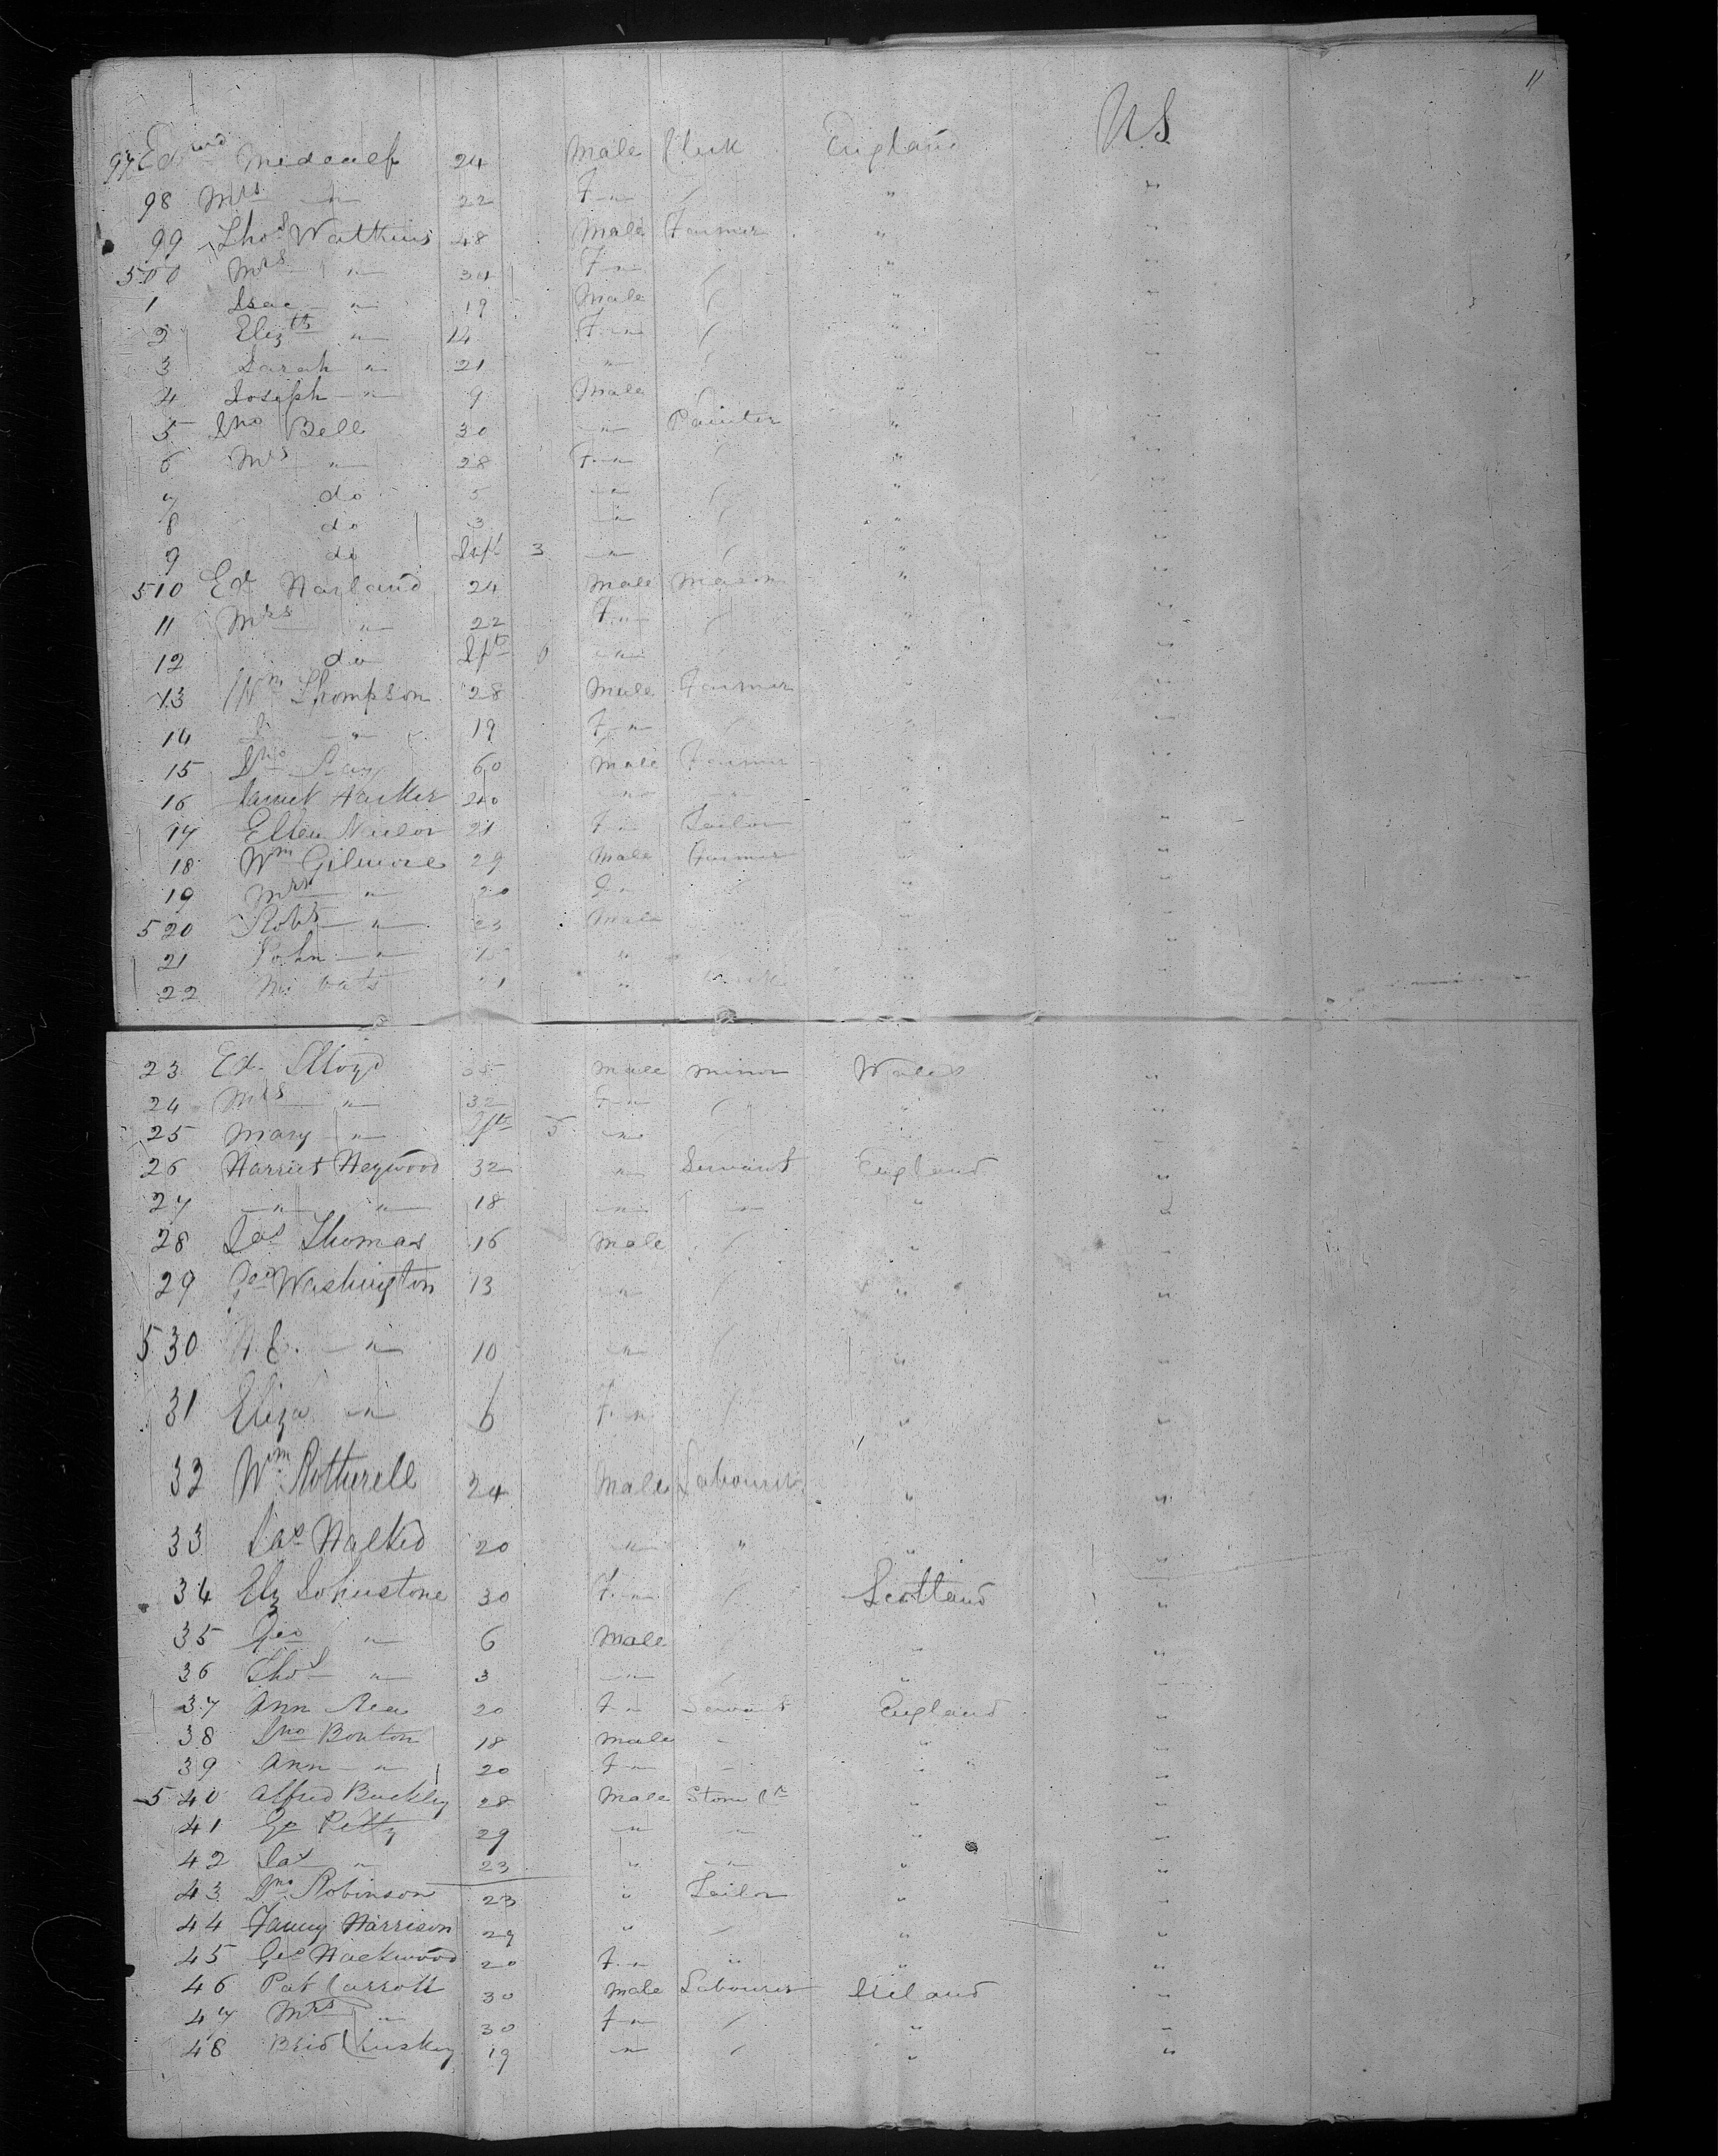 11
97 Edwd Medcalf 24 Male Clerk England U.S
98 Mrs " 22 F " / " "
99 Thos Watkins 48 Male Farmer " "
500 Mrs " 34 F " / " "
1 Isac " 19 Male / " "
2 Elizth " 14 F " / " "
3 Sarah " 21 " / " "
4 Joseph " 9 Male / " "
5 Jno Bell 30 " Painter " "
6 Mrs " 28 F " / " "
7 do 5 " / " "
8 do 3 " / " "
9 do Inft 3 " / " "
510 Ed Harland 24 Male Mason " "
11 Mrs " 22 F " / " "
12 do Inft 6 " / " "
13 Wm Thompson 28 Male Farmer " "
14 " 19 F " / " "
15 Jno Ray 60 Male Farmer " "
16 Harker 20 " " " "
17 Ellen 21 F " Tailor " "
18 Wm Gilmore 29 Male Farmer " "
19 Mrs " 20 F " / " "
520 Robt " 23 Male " "
21 John " 15 " " "
22 " " "
23 Ed. Lloyd 35 Male Minor Wales "
24 Mrs " 32 F " / " "
25 Mary " Inft 5 " " "
26 Harriet Heywood 32 " Servant England "
27 " " 18 " " " "
28 Jas Thomas 16 Male / " "
29 Geo Washington 13 " / " "
530 H. E. " 10 " / " "
31 Eliza " 6 F. " / " "
32 Wm Rotherell 24 Male Labourer " "
33 Jas Halked 20 " " " "
34 Elz Johnstone 30 F. " / Scotland "
35 Geo " 6 Male / " "
36 Thos " 3 " / " "
37 Ann Rea 20 F " Servant England "
38 Jno Bouton 18 Male " " "
39 Ann " 20 F " " " "
540 Alfred Buckley 28 Male Stone Ct " "
41 Geo Petty 29 " " " "
42 Jas " 23 " " " "
43 Jno Robinson 23 " Tailor " "
44 Fanny Harrison 29 " / " "
45 Geo Hackwood 20 F. " " " "
46 Pat Carroll 30 Male Labourer Ireland "
47 Mrs " 30 F " / " "
48 Brid Cluskey 19 " / " "